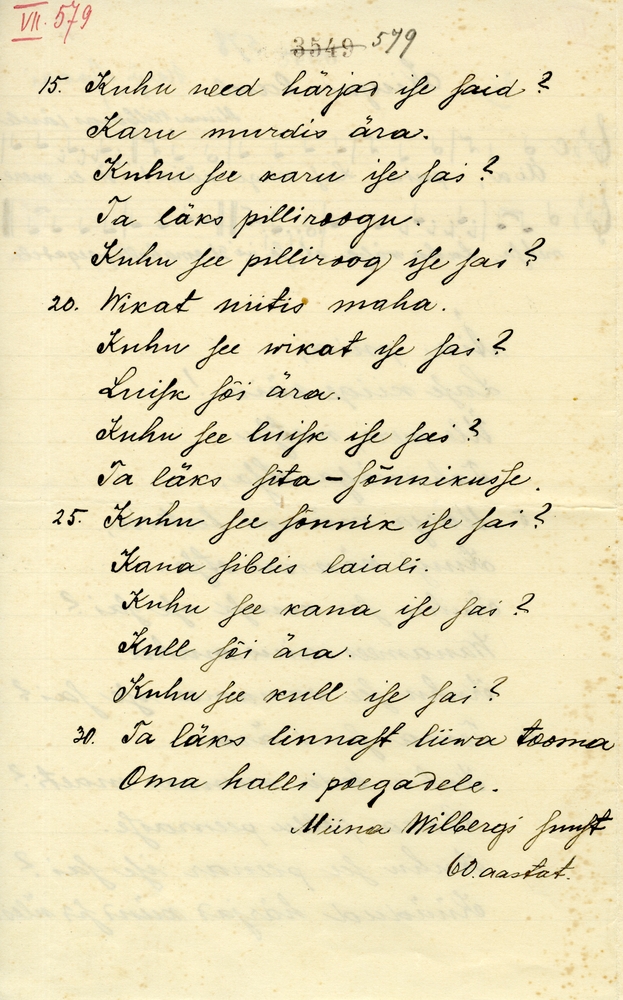 VII. 579
3549 579
15. Kuhu need härjad ise said?
Karu murdis ära.
Kuhu see karu ise sai?
Ta läks pilliroogu.
Kuhu see pilliroog ise sai?
20. Wikat niitis maha.
Kuhu see wikat ise sai?
Luisk sõi ära.
Kuhu see luisk ise sai?
Ta läks sita-sõnnikusse.
25. Kuhu see sõnnik ise sai?
Kana siblis laiali.
Kuhu see kana ise sai?
Kull sõi ära.
Kuhu see kull ise sai?
30. Ta läks linnast liiwa tooma
Oma halli poegadele.
Miina Wilbergi suust
60. aastat.